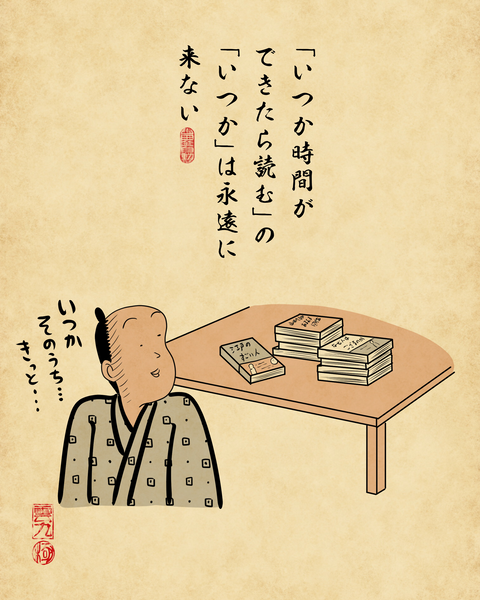 「いつか時間が
できたら読む」の
「いつか」は永遠に
来ない
いつか
そのうち…
きっと…
江戸の